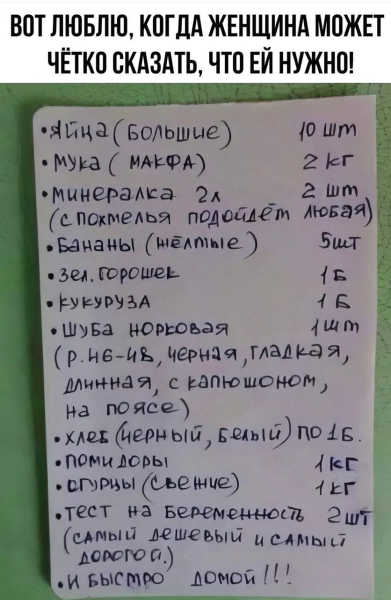 ВОТ ЛЮБЛЮ, КОГДА ЖЕНЩИНА МОЖЕТ
ЧЁТКО СКАЗАТЬ, ЧТО ЕЙ НУЖНО!
• Яйца (Большие) 10 шт
• Мука (МАКФА) 2 кг
• минералка 2л 2 шт
(с похмелья подойдёт любая)
• Бананы (жёлтые) 5шт
• Зел. горошек 1 Б
• кукуруза 1 Б
• Шуба норковая 1 шт
(р. 46-48, черная, гладкая,
длинная, с капюшоном,
на поясе)
• хлеб (черный, белый) по 1 Б.
• помидоры 1 кг
• огурцы (свежие) 1 кг
• тест на беременность 2 шт
(самый дешевый и самый
дорогой.)
• и быстро домой !!!